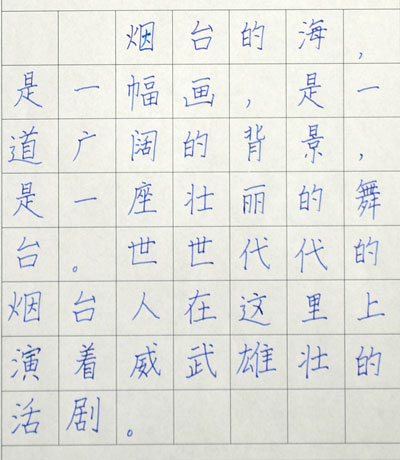 烟台的海，
是一幅画，是一
道广阔的背景，
是一座壮丽的舞
台。世世代代的
烟台人在这里上
演着威武雄壮的
活剧。